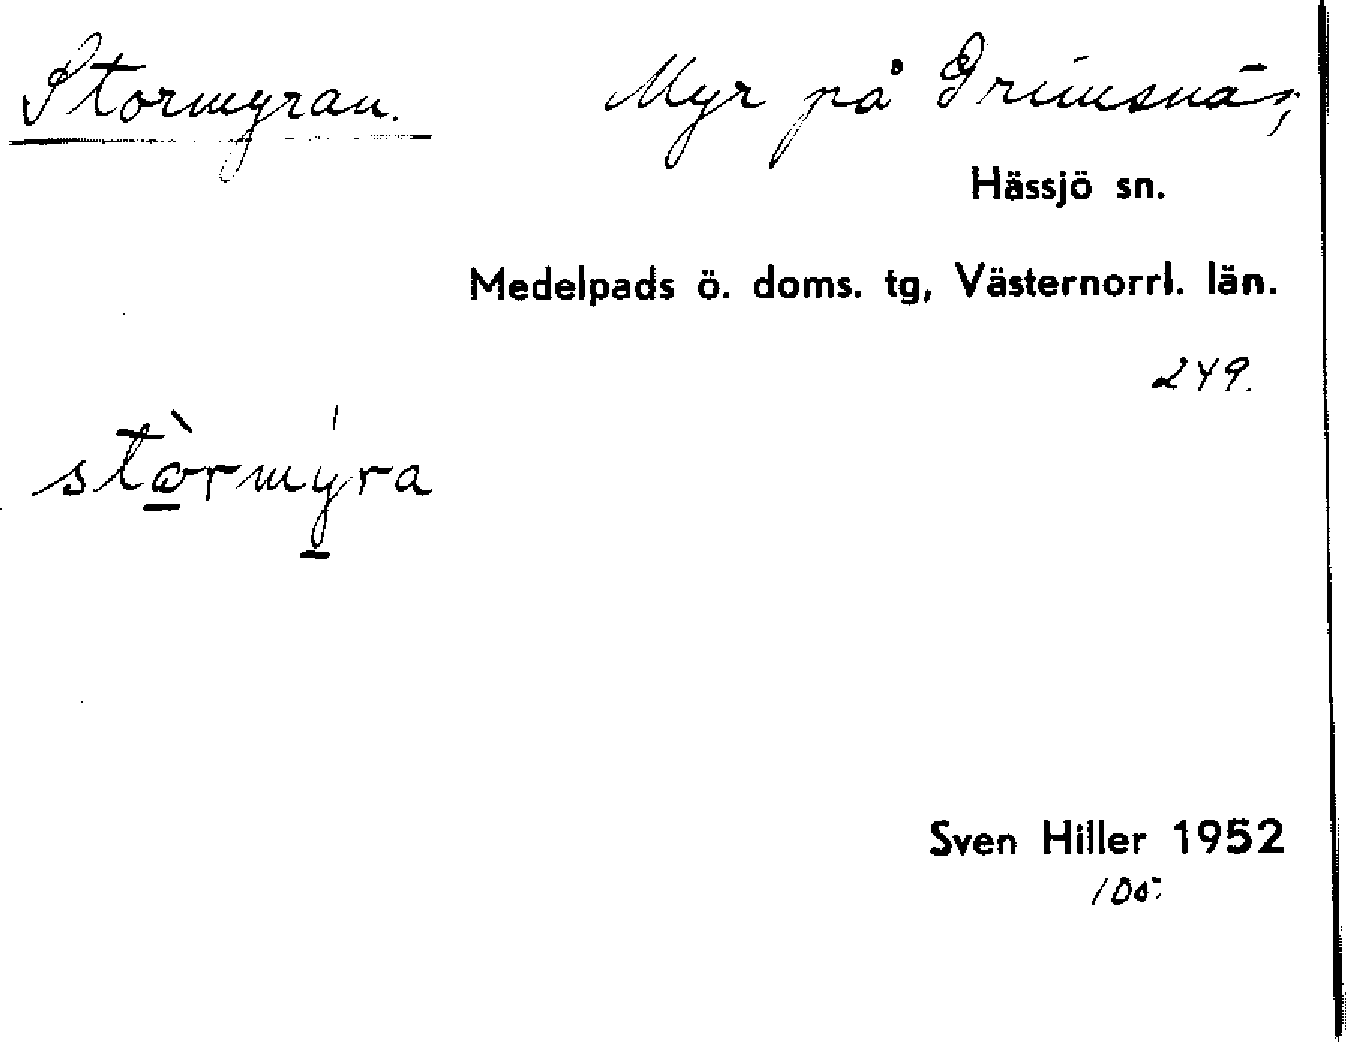 Stormyran. Myr på Grimsnäs,
Hässjö sn.
Medelpads ö. doms. tg, Västernorrl. län.
249.
stòrmýra
Sven Hiller 1952